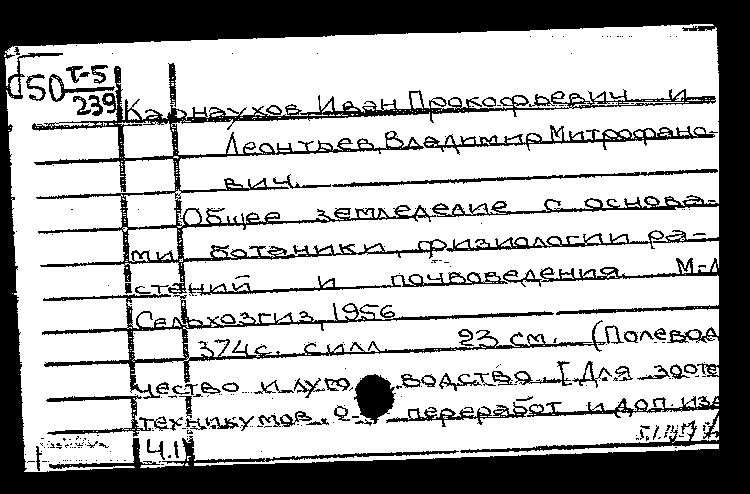 d50 Т-5
239
Карнаухов Иван Прокофьевич и
Леонтьев, Владимир Митрофано-
вич.
Общее земледелие с основа-
ми ботаники, физиологии ра-
стений и почвоведения. М-Л
Сельхозгиз, 1956
374с. с илл 23 см. (Полевод
чество и луго водство. [Для зооте
техникумов. 2- переработ и доп. изд
Ч.1)